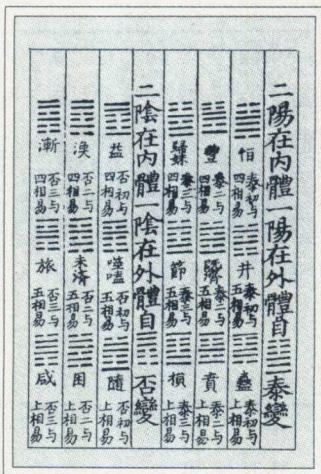 二陽在內體一陽在外體自泰變
恒 泰初与四相易 井 泰初与五相易 蠱 泰初与上相易
豐 泰二与四相易 旣濟 泰二与五相易 賁 泰二与上相易
歸妹 泰三与四相易 節 泰三与五相易 損 泰三与上相易
二陰在內體一陰在外體自否變
益 否初与四相易 噬嗑 否初与五相易 隨 否初与上相易
渙 否二与四相易 未濟 否二与五相易 困 否二与上相易
漸 否三与四相易 旅 否三与五相易 咸 否三与上相易